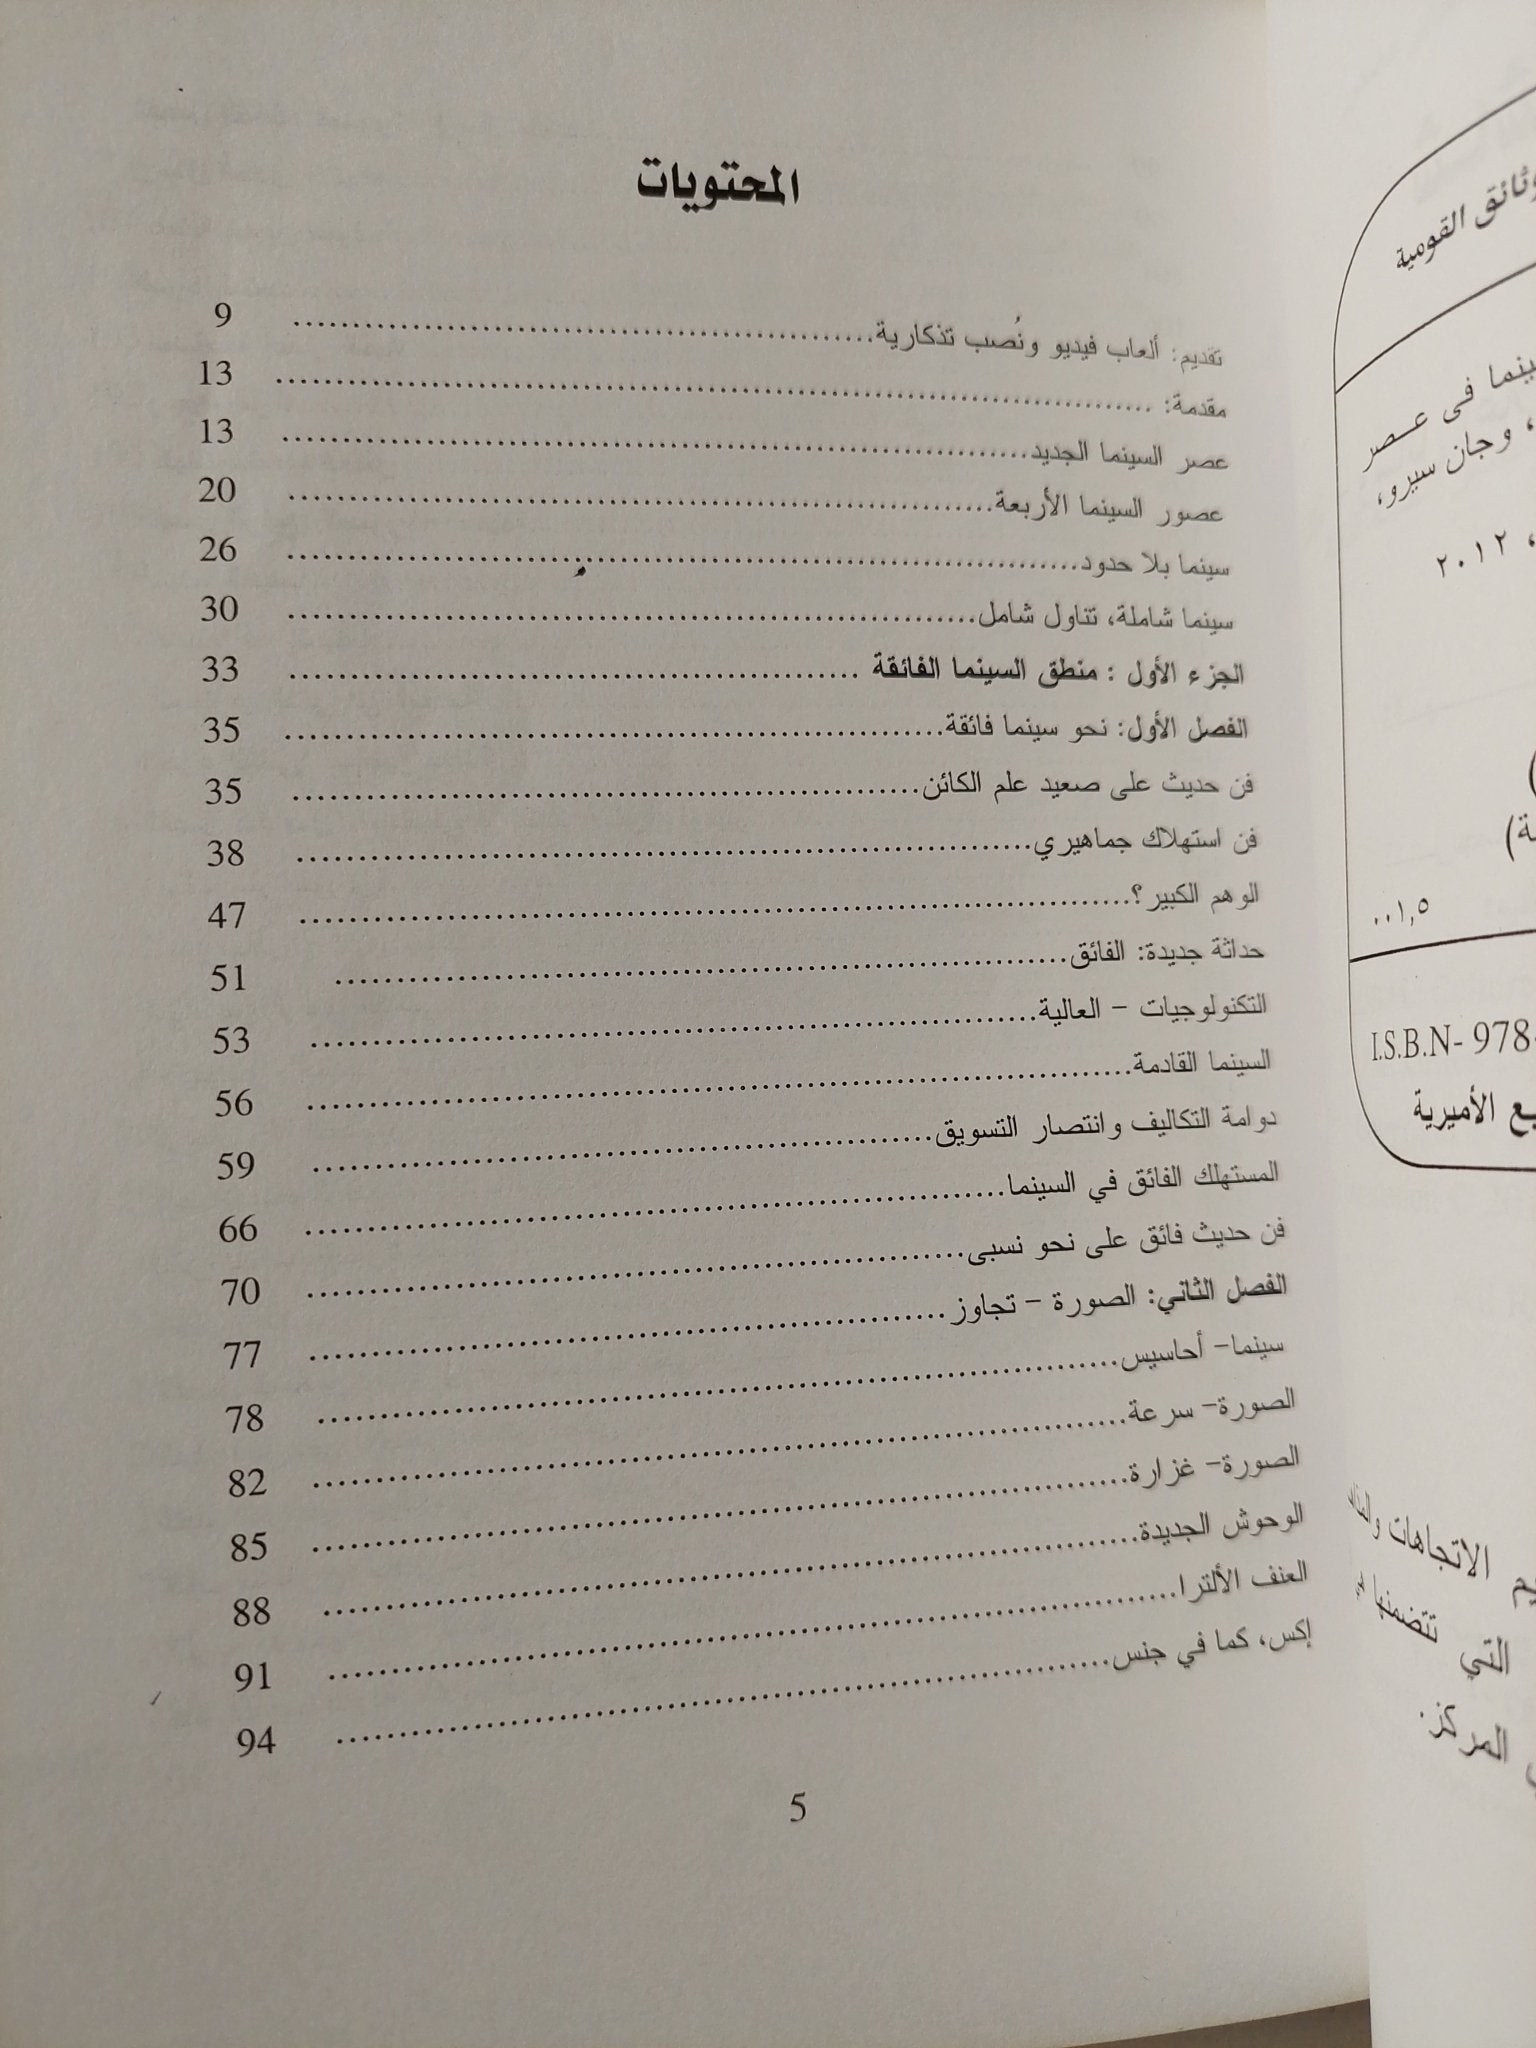 وثائق القومية
سينما فى عصر
، وجان سيرو،
، ٢٠١٢
٠٠١,٥
I.S.B.N- 978-
الأميرية
الاتجاهات
التي تتضمنها
المركز.
المحتويات
تقديم: ألعاب فيديو ونُصب تذكارية.................... 9
مقدمة: .................... 13
عصر السينما الجديد.................... 13
عصور السينما الأربعة.................... 20
سينما بلا حدود.................... 26
سينما شاملة، تناول شامل.................... 30
الجزء الأول : منطق السينما الفائقة .................... 33
الفصل الأول: نحو سينما فائقة.................... 35
فن حديث على صعيد علم الكائن.................... 35
فن استهلاك جماهيري.................... 38
الوهم الكبير؟.................... 47
حداثة جديدة: الفائق.................... 51
التكنولوجيات – العالية.................... 53
السينما القادمة.................... 56
دوامة التكاليف وانتصار التسويق.................... 59
المستهلك الفائق في السينما.................... 66
فن حديث فائق على نحو نسبى.................... 70
الفصل الثاني: الصورة – تجاوز.................... 77
سينما- أحاسيس.................... 78
الصورة- سرعة.................... 82
الصورة- غزارة.................... 85
الوحوش الجديدة.................... 88
العنف الألترا.................... 91
إكس، كما في جنس.................... 94
5